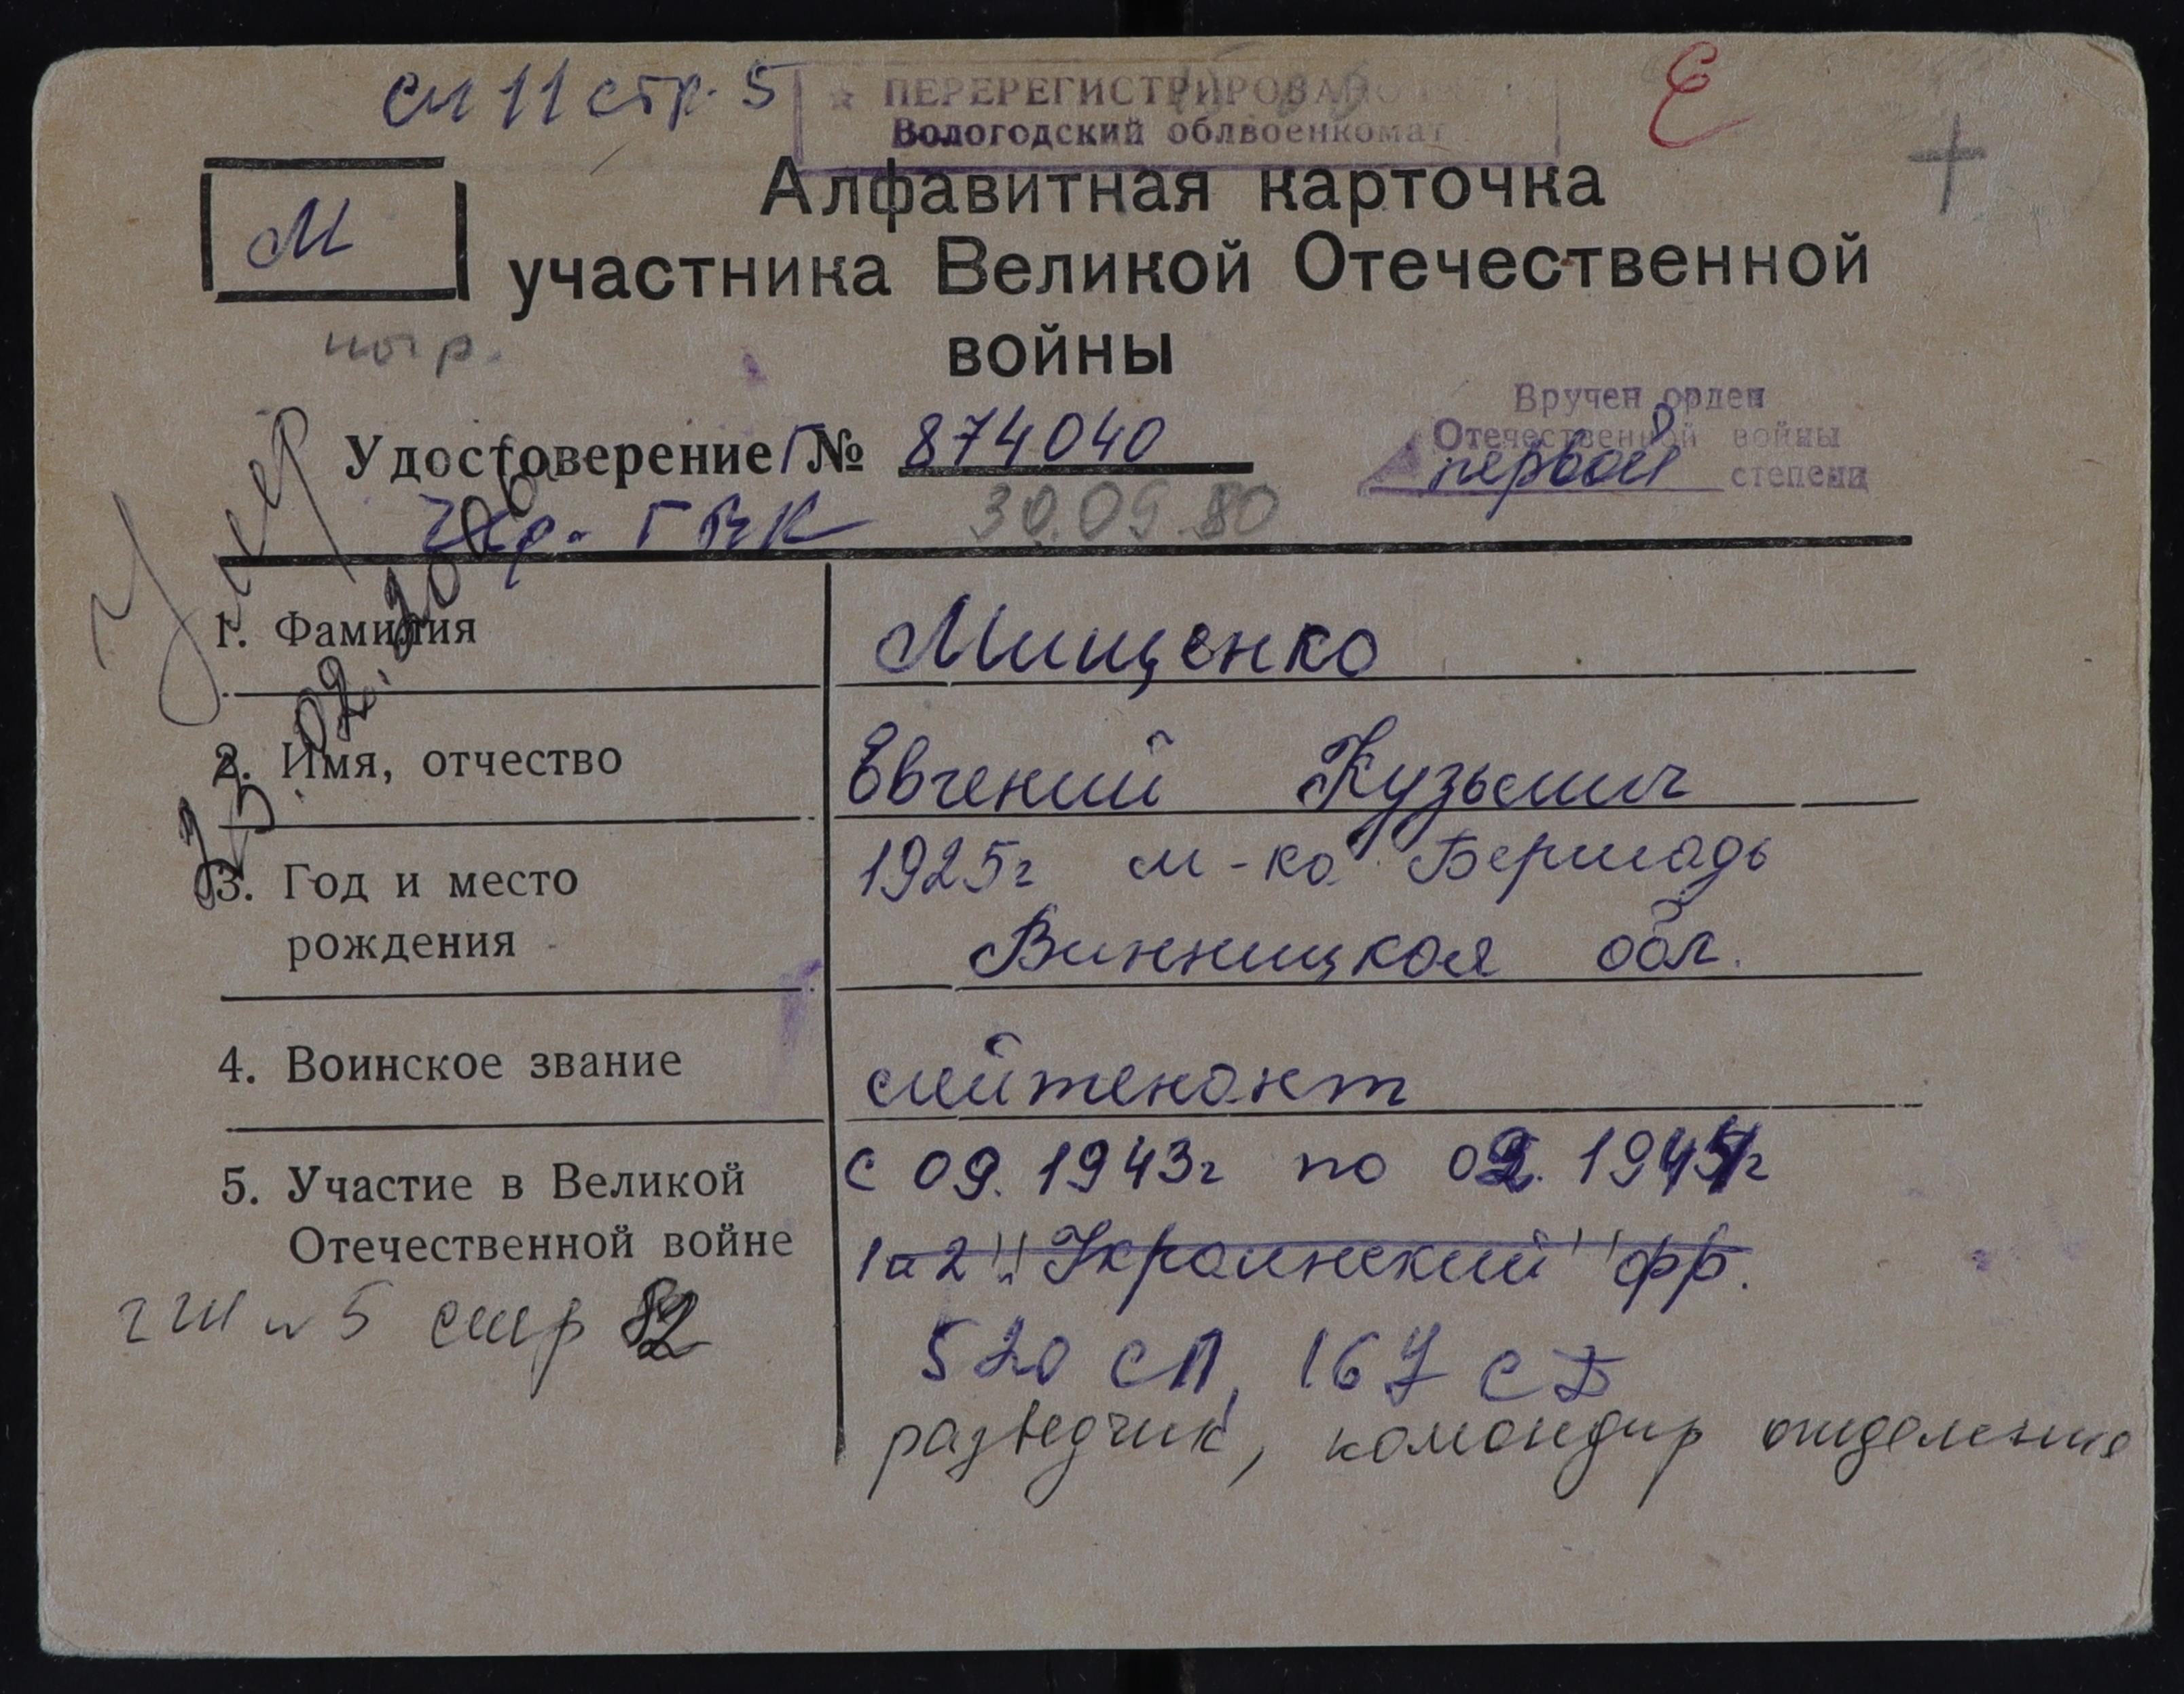 сл 11 стр. 5
ПЕРЕРЕГИСТРИРОВАНО
Вологодский облвоенкомат
Е
М
Алфавитная карточка
участника Великой Отечественной
войны
погр.
Удостоверение Г № 874040
Чер. ГВК 30.09.80
Вручен орден
Отечественной войны
первой степени
Умер
23.02.2006
1. Фамилия Мищенко
2. Имя, отчество Евгений Кузьмич
3. Год и место
рождения
1925г м-ко Бершадь
Винницкая обл.
4. Воинское звание лейтенант
5. Участие в Великой
Отечественной войне
с 09.1943г по 02.1944г
1 и 2 "Украинский" фр.
520 СП, 167 СД
разведчик, командир отделения
стр 82